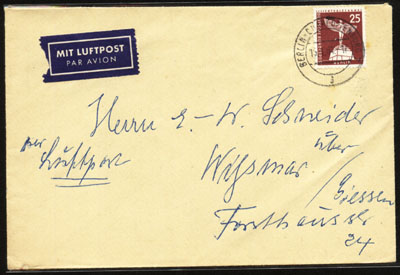 MIT LUFTPOST
PAR AVION
25
BERLIN
BERLIN
Herrn E.-W. Schneider
per
Luftpost
über
Wissmar
/Giessen
Forsthausstr
24